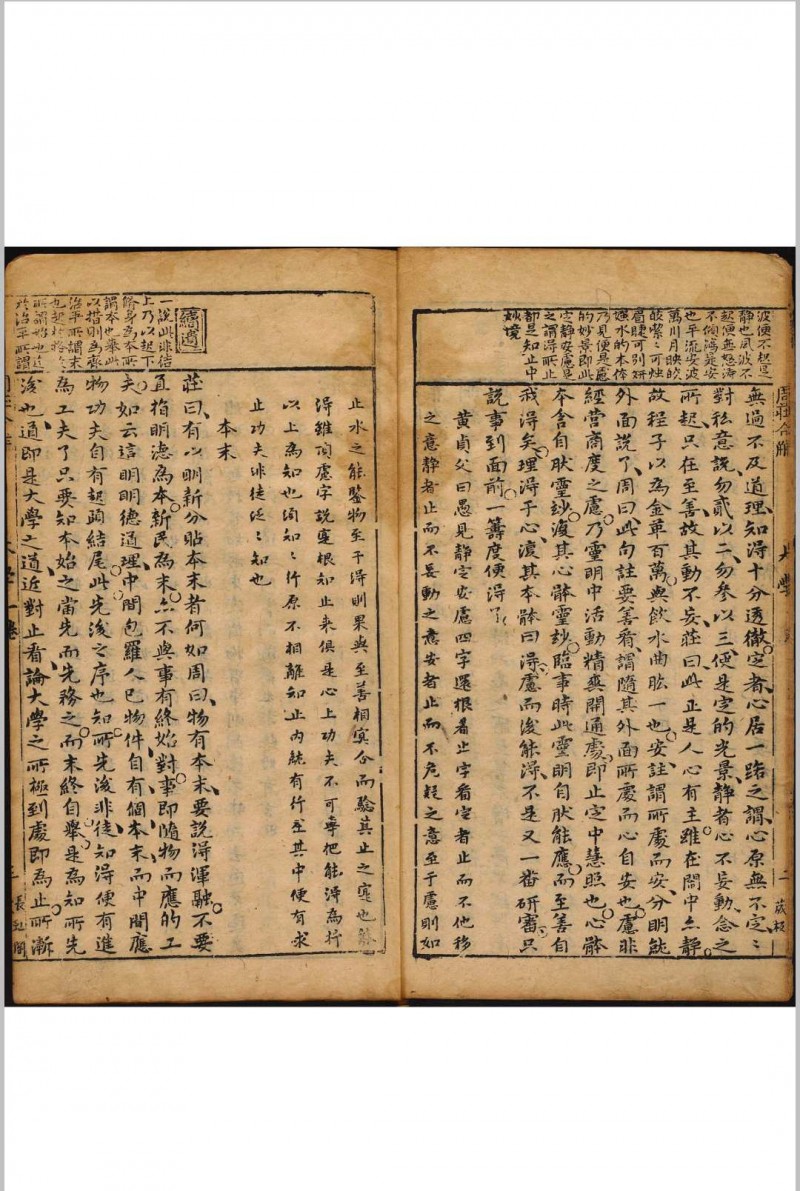 波便不起是
靜也風波不
起便無怒濤
不傾瀉是安
也平流安波
萬川月映的
可燭
眉睫可別妍
媸水的本体
乃見便是慮
的妙景即此
定靜安慮見
之謂得所止
都是知止中
妙境
周莊合解
大學
二
無過不及道理知得十分透徹定者心居一路之謂心原無不定
對私意說勿貳以二勿參以三便是定的光景靜者心不妄動念之
所起只在至善故其動不妄莊曰此正是人心有主雖在閙中亦靜
故程子以為金革百萬與飲水曲肱一也安註謂所處而安分明能
外面說了周曰此句註要善看謂隨其外面所處而心自安也慮非
經營商度之慮乃靈明中活動精爽開通處即止定中慧照也心體
本含自肰靈妙復其心體靈妙臨事時此靈明自肰能應而至善自
我得矣理得于心復其本體曰得慮而後能得不是又一番研審只
說事到面前一籌度便得了
黃貞父曰愚見靜定安慮四字還根着止字看定者止而不他移
之意靜者止而不妄動之意安者止而不危疑之意至于慮則如
止水之能鑒物至于得則果與至善相冥合而驗其止之實也
得雖頂慮字說寔根知止來俱是心上功夫不可專把能得為行
以上為知也須知知行原不相離知止內統有行至其中便有求
止功夫非徒泛泛知也
本末
莊曰有以明新分貼本末者何如周曰物有本末要說得渾融不要
直指明德為本新民為末亦不與事有終始對事即隨物而應的工
夫如云這明明德通理中間包羅人已物件自有個本末而中間應
物功夫自有起頭結尾此先後之序也知所先後非徒知得便有進
為工夫了只要知本始之當先而先務之而末終自舉是為知所先
後也道即是大學之道近對止看論大學之所極到處即為止所漸
一說此非結
上乃以起下
脩身為本所
謂本也舉此
以措則為齊
治平所謂末
也
所謂始也
於治平所謂
大學一卷
三